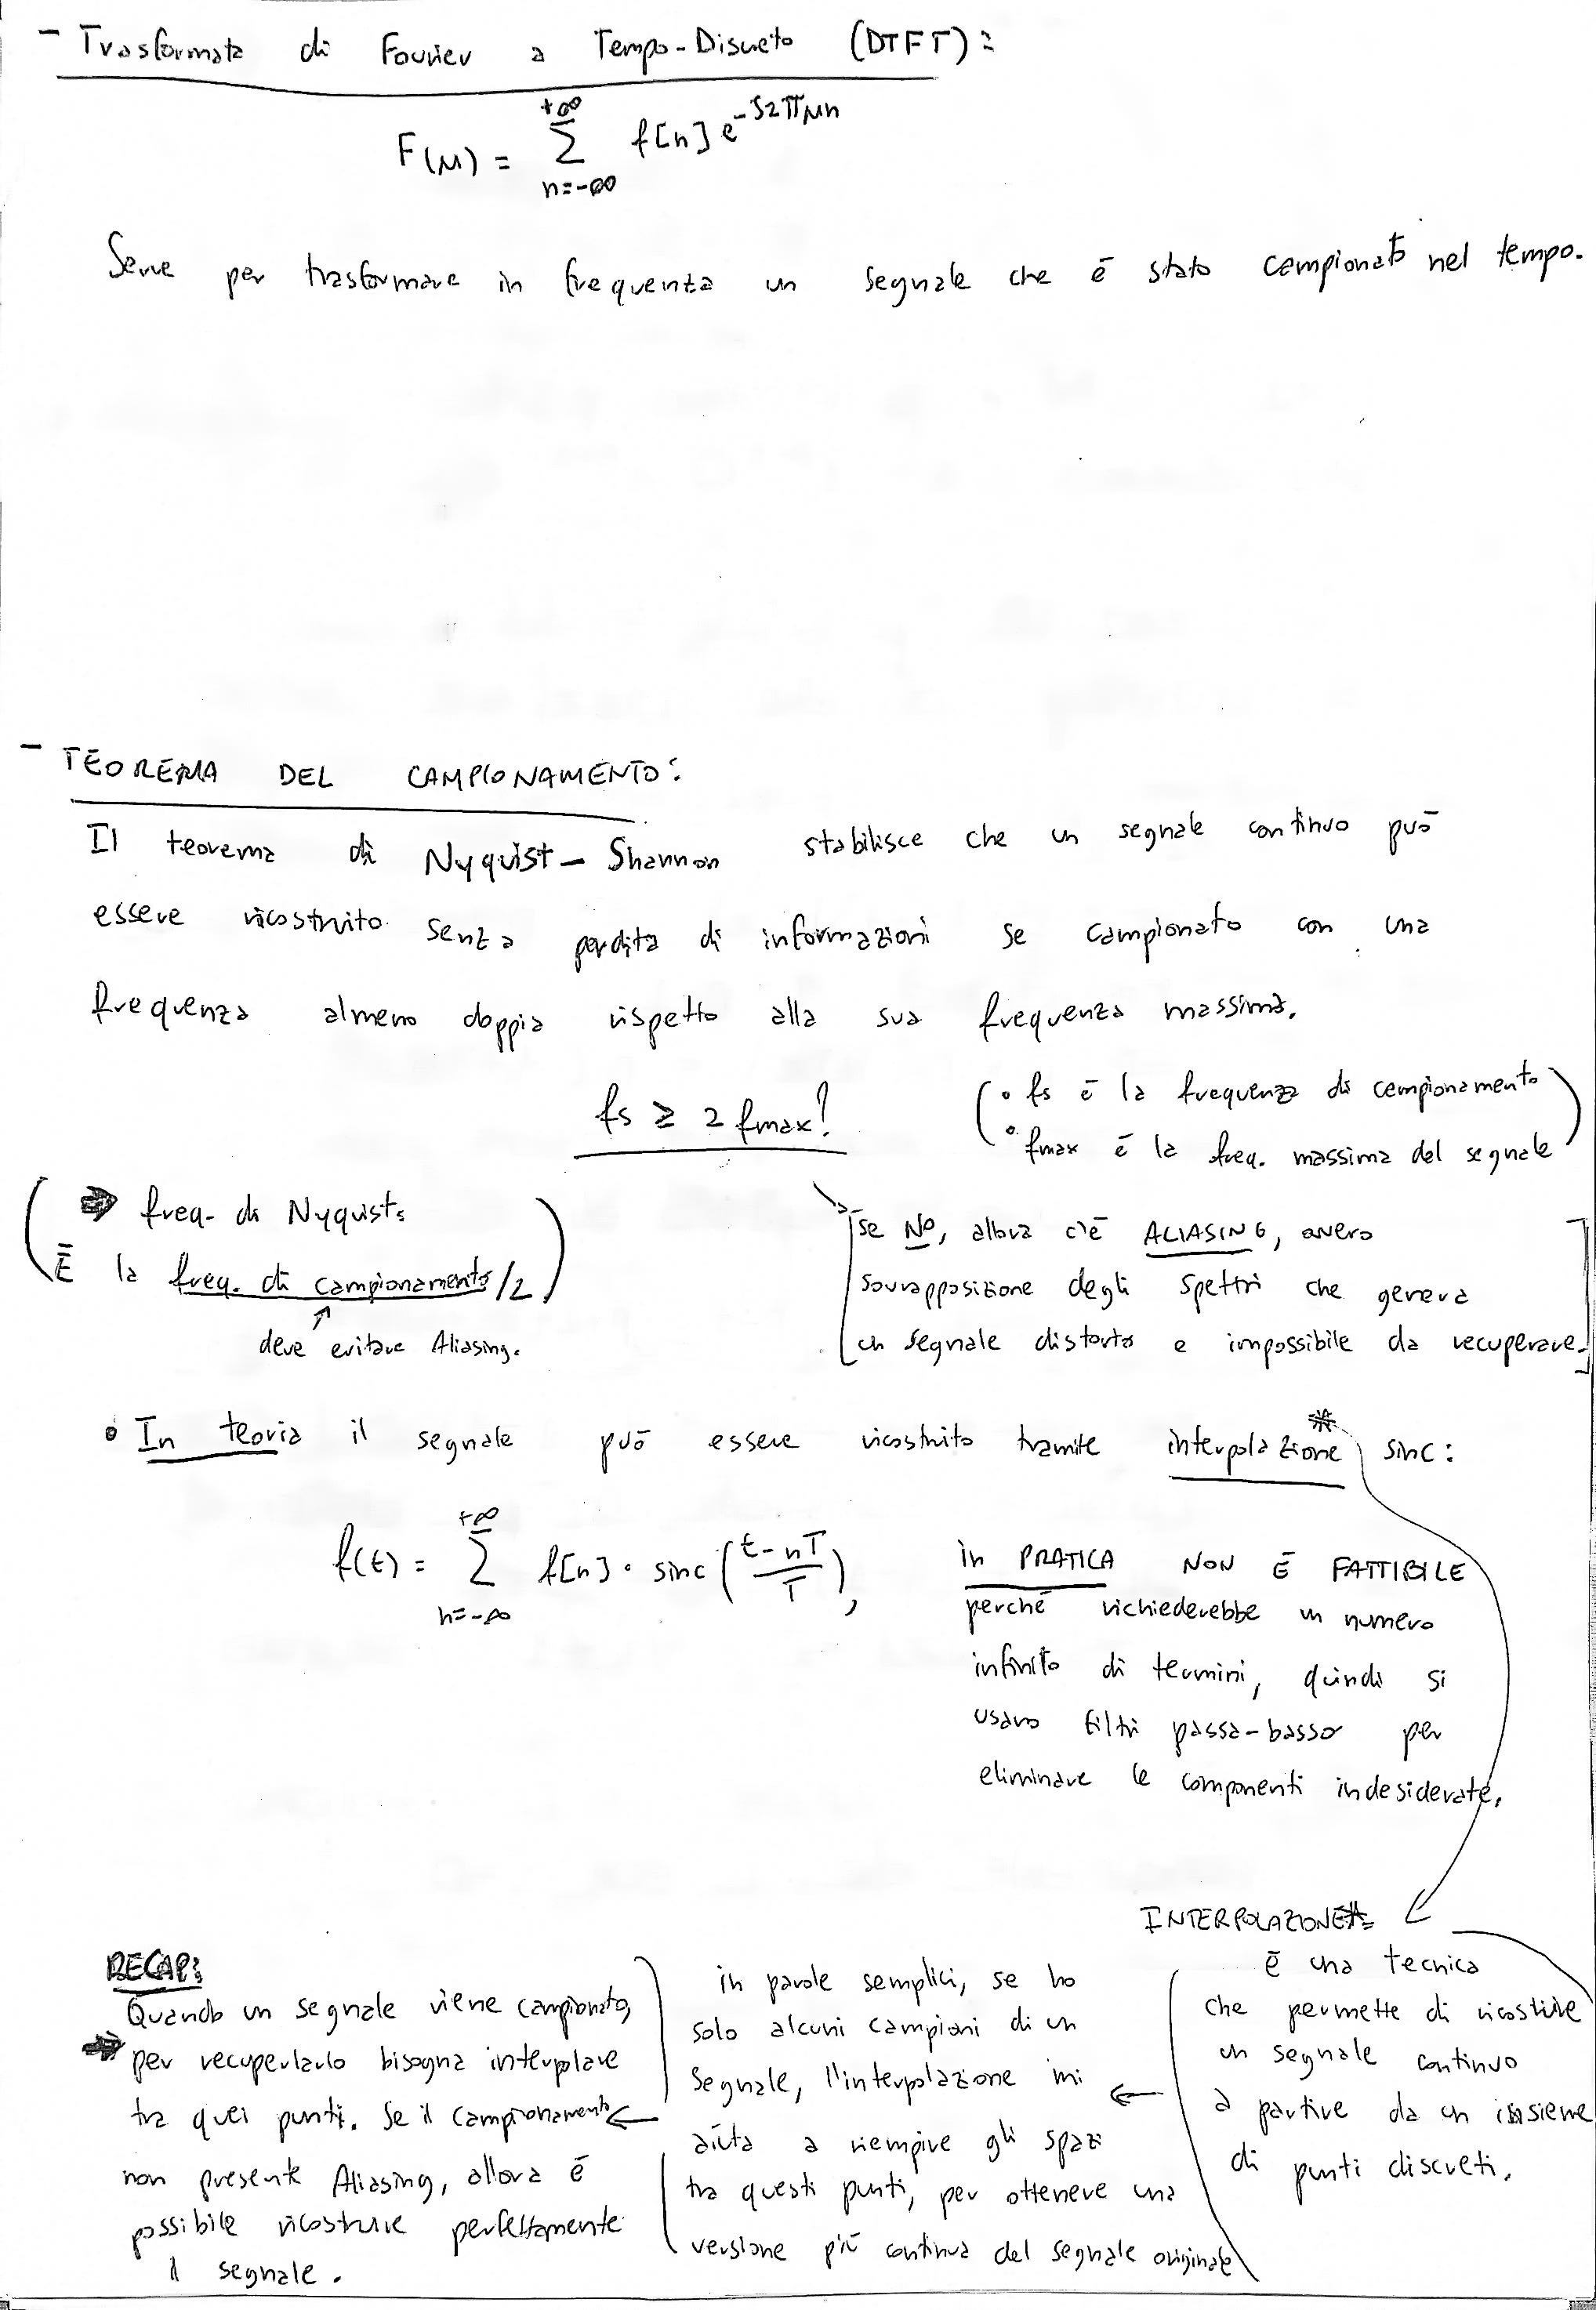 - Trasformata di Fourier a Tempo-Discreto (DTFT):
F(μ) = +∞ Σ n=-∞ f[n] e^-j2πμn
Serve per trasformare in frequenza un segnale che è stato campionato nel tempo.
- TEOREMA DEL CAMPIONAMENTO:
Il teorema di Nyquist-Shannon stabilisce che un segnale continuo può
essere ricostruito senza perdita di informazioni se campionato con una
frequenza almeno doppia rispetto alla sua frequenza massima.
fs ≥ 2 fmax!
(• fs è la frequenza di campionamento
• fmax è la freq. massima del segnale)
(⇒ freq. di Nyquist:
È la freq. di campionamento/2)
↑
deve evitare Aliasing.
[se NO, allora c'è ALIASING, ovvero
sovrapposizione degli spettri che genera
un segnale distorto e impossibile da recuperare.]
• In teoria il segnale può essere ricostruito tramite interpolazione* sinc:
f(t) = +∞ Σ n=-∞ f[n] · sinc((t-nT)/T),
in PRATICA NON È FATTIBILE
perché richiederebbe un numero
infinito di termini, quindi si
usano filtri passa-basso per
eliminare le componenti indesiderate.
INTERPOLAZIONE*:
è una tecnica
che permette di ricostruire
un segnale continuo
a partire da un insieme
di punti discreti.
in parole semplici, se ho
solo alcuni campioni di un
segnale, l'interpolazione mi
aiuta a riempire gli spazi
tra questi punti, per ottenere una
versione più continua del segnale originale
RECAP:
Quando un segnale viene campionato,
⇒ per recuperlarlo bisogna interpolare
tra quei punti. Se il campionamento
non presenta Aliasing, allora è
possibile ricostruire perfettamente
il segnale.